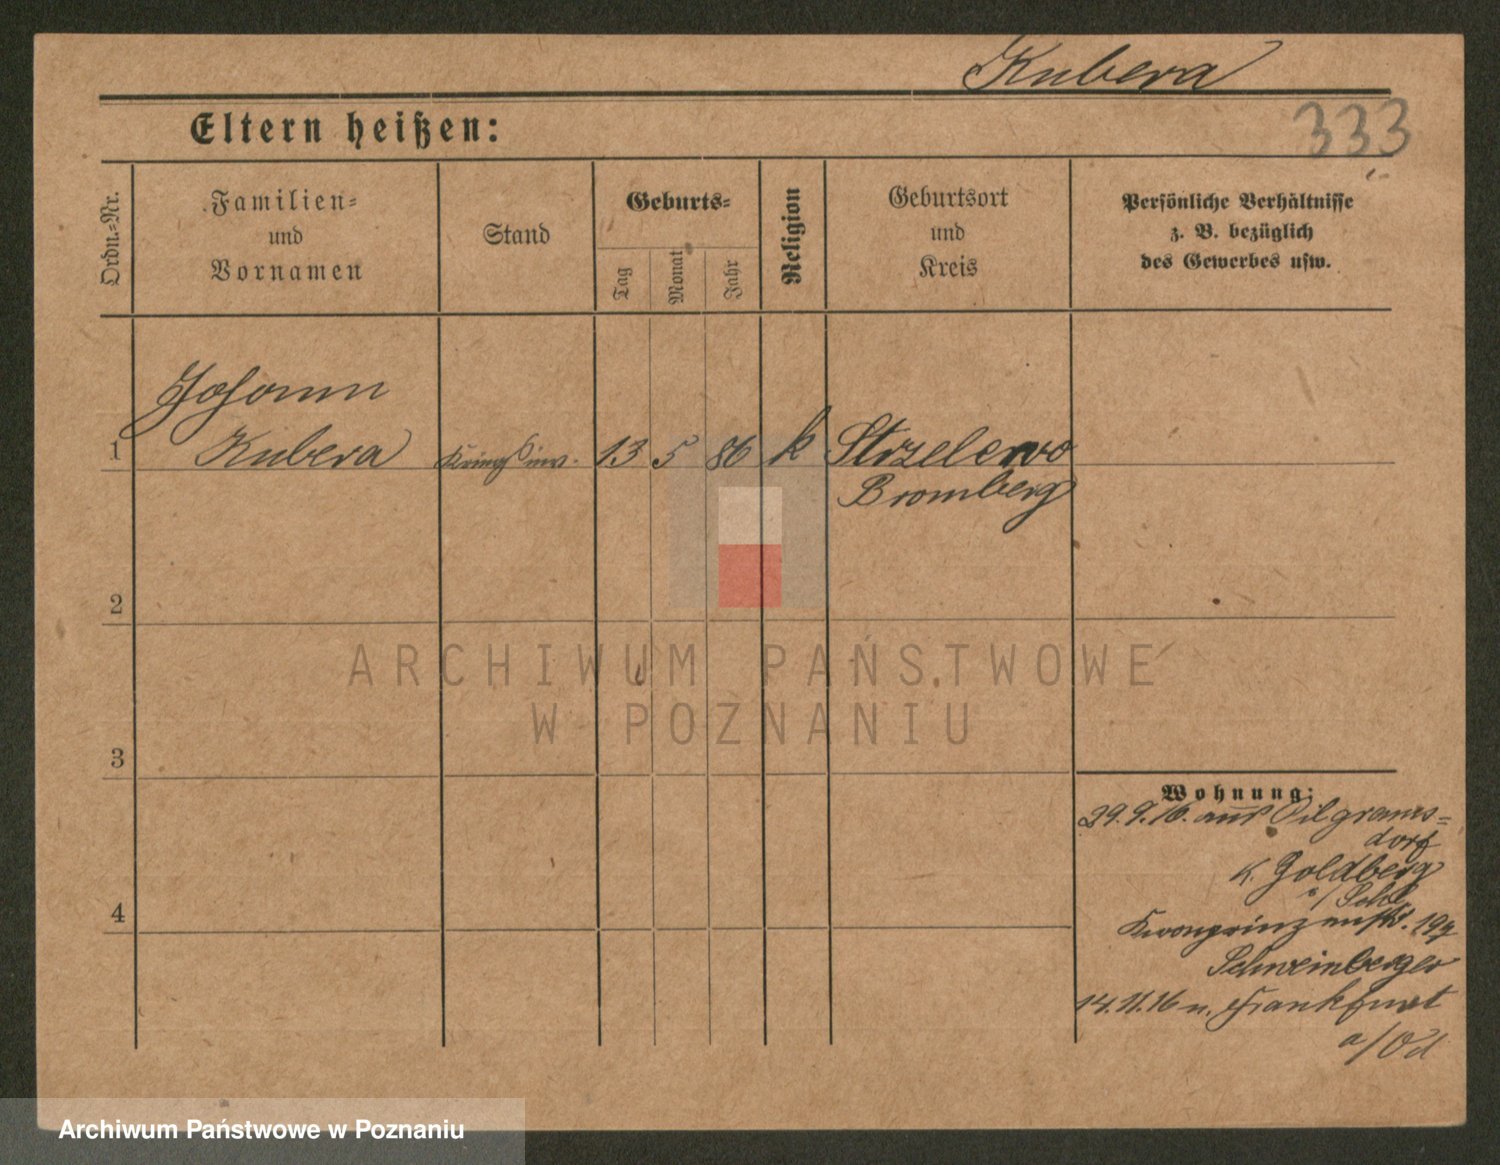 Kubera
Eltern heißen:
333
Ordn.-Nr.
Familien-
und
Vornamen
Stand
Geburts-
Tag
Monat
Jahr
Religion
Geburtsort
und
Kreis
Persönliche Verhältnisse
z. B. bezüglich
des Gewerbes usw.
Johann
1 Kubera 13 5 86 k Strzelewo
Bromberg
2
ARCHIWUM PAŃSTWOWE
W POZNANIU
3
Wohnung:
29.9.16. aus Pilgrams=
dorf
K. Goldberg
i/Schl
4
Kronprinzenstr. 19
Schweinberger
14.11.16 n. Frankfurt
a/Od
Archiwum Państwowe w Poznaniu